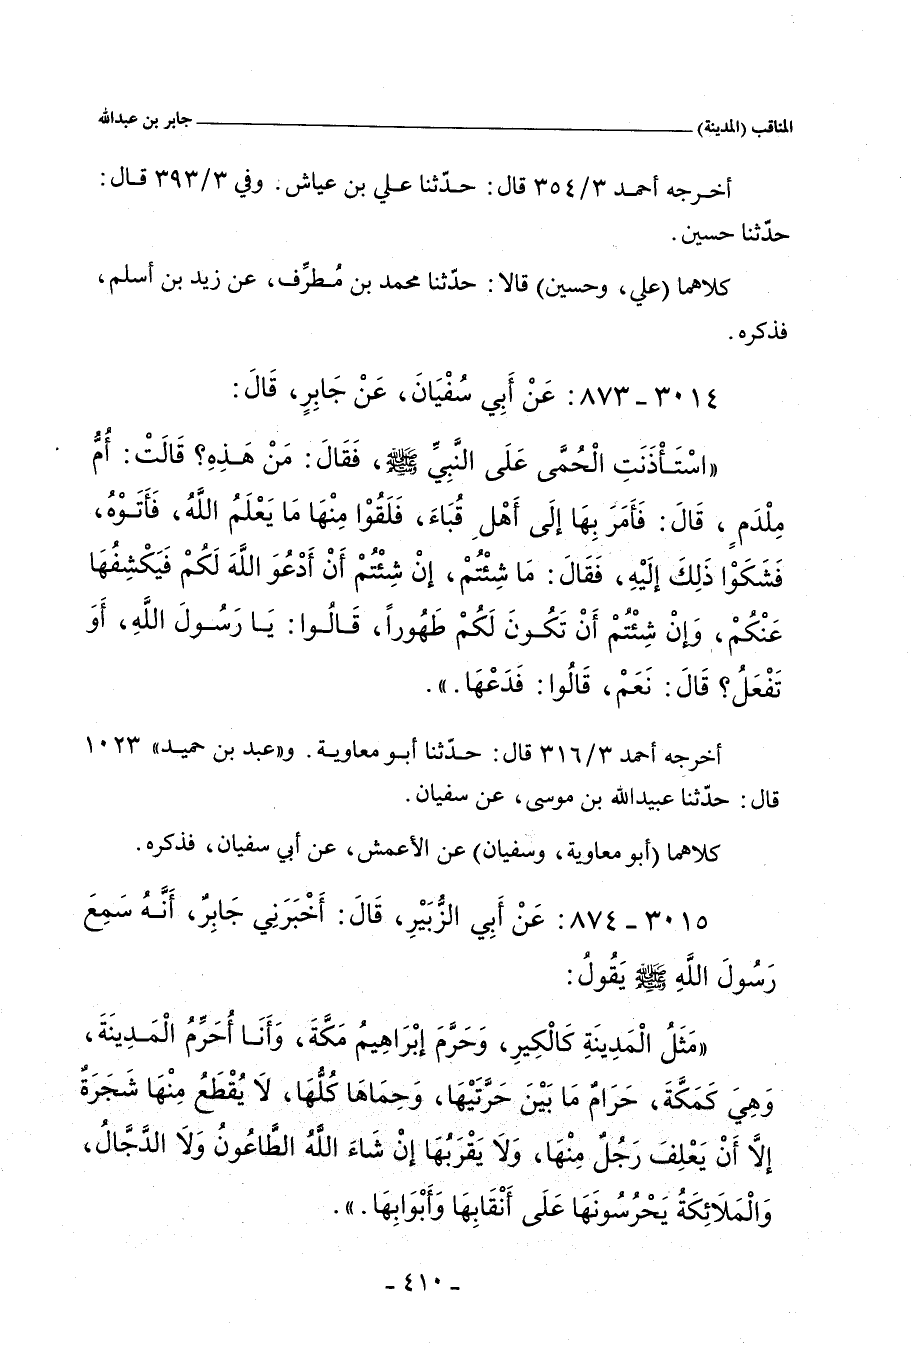 المناقب (المدينة) ــــــــــــ جابر بن عبدالله
أخـرجه أحمـد ٣/٣٥٤ قال: حـدّثنا عـلي بن عياش. وفي ٣/٣٩٣ قـال:
حدّثنا حسين.
كلاهما (علي، وحسين) قالا: حدّثنا محمد بن مُـطرِّف، عن زيد بن أسلم،
فذكره.
٣٠١٤ ـ ٨٧٣: عَنْ أَبِي سُفْيَانَ، عَنْ جَابِرٍ، قَالَ:
«اسْتَـأْذَنَتِ الْحُمَّى عَلَى النَّبِيِّ ﷺ، فَقَالَ: مَنْ هَـذِهِ؟ قَالَتْ: أُمُّ
مِلْدَمٍ، قَالَ: فَأَمَرَ بِهَا إِلَى أَهْلِ قُبَاءَ، فَلَقُوا مِنْهَا مَا يَعْلَمُ اللَّهُ، فَأَتَـوْهُ،
فَشَكَوْا ذَلِكَ إِلَيْهِ، فَقَالَ: مَا شِئْتُمْ، إِنْ شِئْتُمْ أَنْ أَدْعُوَ اللَّهَ لَكُمْ فَيَكْشِفُهَا
عَنْكُمْ، وَإِنْ شِئْتُمْ أَنْ تَكُـونَ لَكُمْ طَهُوراً، قَـالُـوا: يَـا رَسُـولَ اللَّهِ، أَوَ
تَفْعَلُ؟ قَالَ: نَعَمْ، قَالُوا: فَدَعْهَا.».
أخرجه أحمد ٣/٣١٦ قال: حـدّثنا أبـو معاويـة. و«عبـد بن حميـد» ١٠٢٣
قال: حدّثنا عبيدالله بن موسى، عن سفيان.
كلاهما (أبو معاوية، وسفيان) عن الأعمش، عن أبي سفيان، فذكره.
٣٠١٥ ـ ٨٧٤: عَنْ أَبِي الزُّبَيْرِ، قَالَ: أَخْبَرَنِي جَابِرٌ، أَنَّـهُ سَمِعَ
رَسُولَ اللَّهِ ﷺ يَقُولُ:
«مَثَلُ الْمَدِينَةِ كَالْكِيرِ، وَحَرَّمَ إِبْرَاهِيمُ مَكَّةَ، وَأَنَـا أُحَرِّمُ الْمَـدِينَةَ،
وَهِيَ كَمَكَّةَ، حَرَامٌ مَا بَيْنَ حَرَّتَيْهَا، وَحِمَاهَا كُلُّهَا، لَا يُقْطَعُ مِنْهَا شَجَرَةٌ
إِلَّا أَنْ يَعْلِفَ رَجُلٌ مِنْهَا، وَلَا يَقْرَبُهَا إِنْ شَاءَ اللَّهُ الطَّاعُونُ وَلَا الدَّجَّالُ،
وَالْمَلَائِكَةُ يَحْرُسُونَهَا عَلَى أَنْقَابِهَا وَأَبْوَابِهَا.».
ـ ٤١٠ ـ